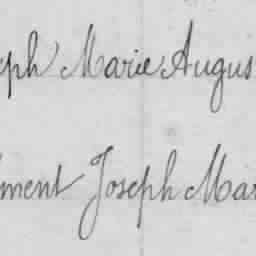 eph Marie Augus
ment Joseph Mar